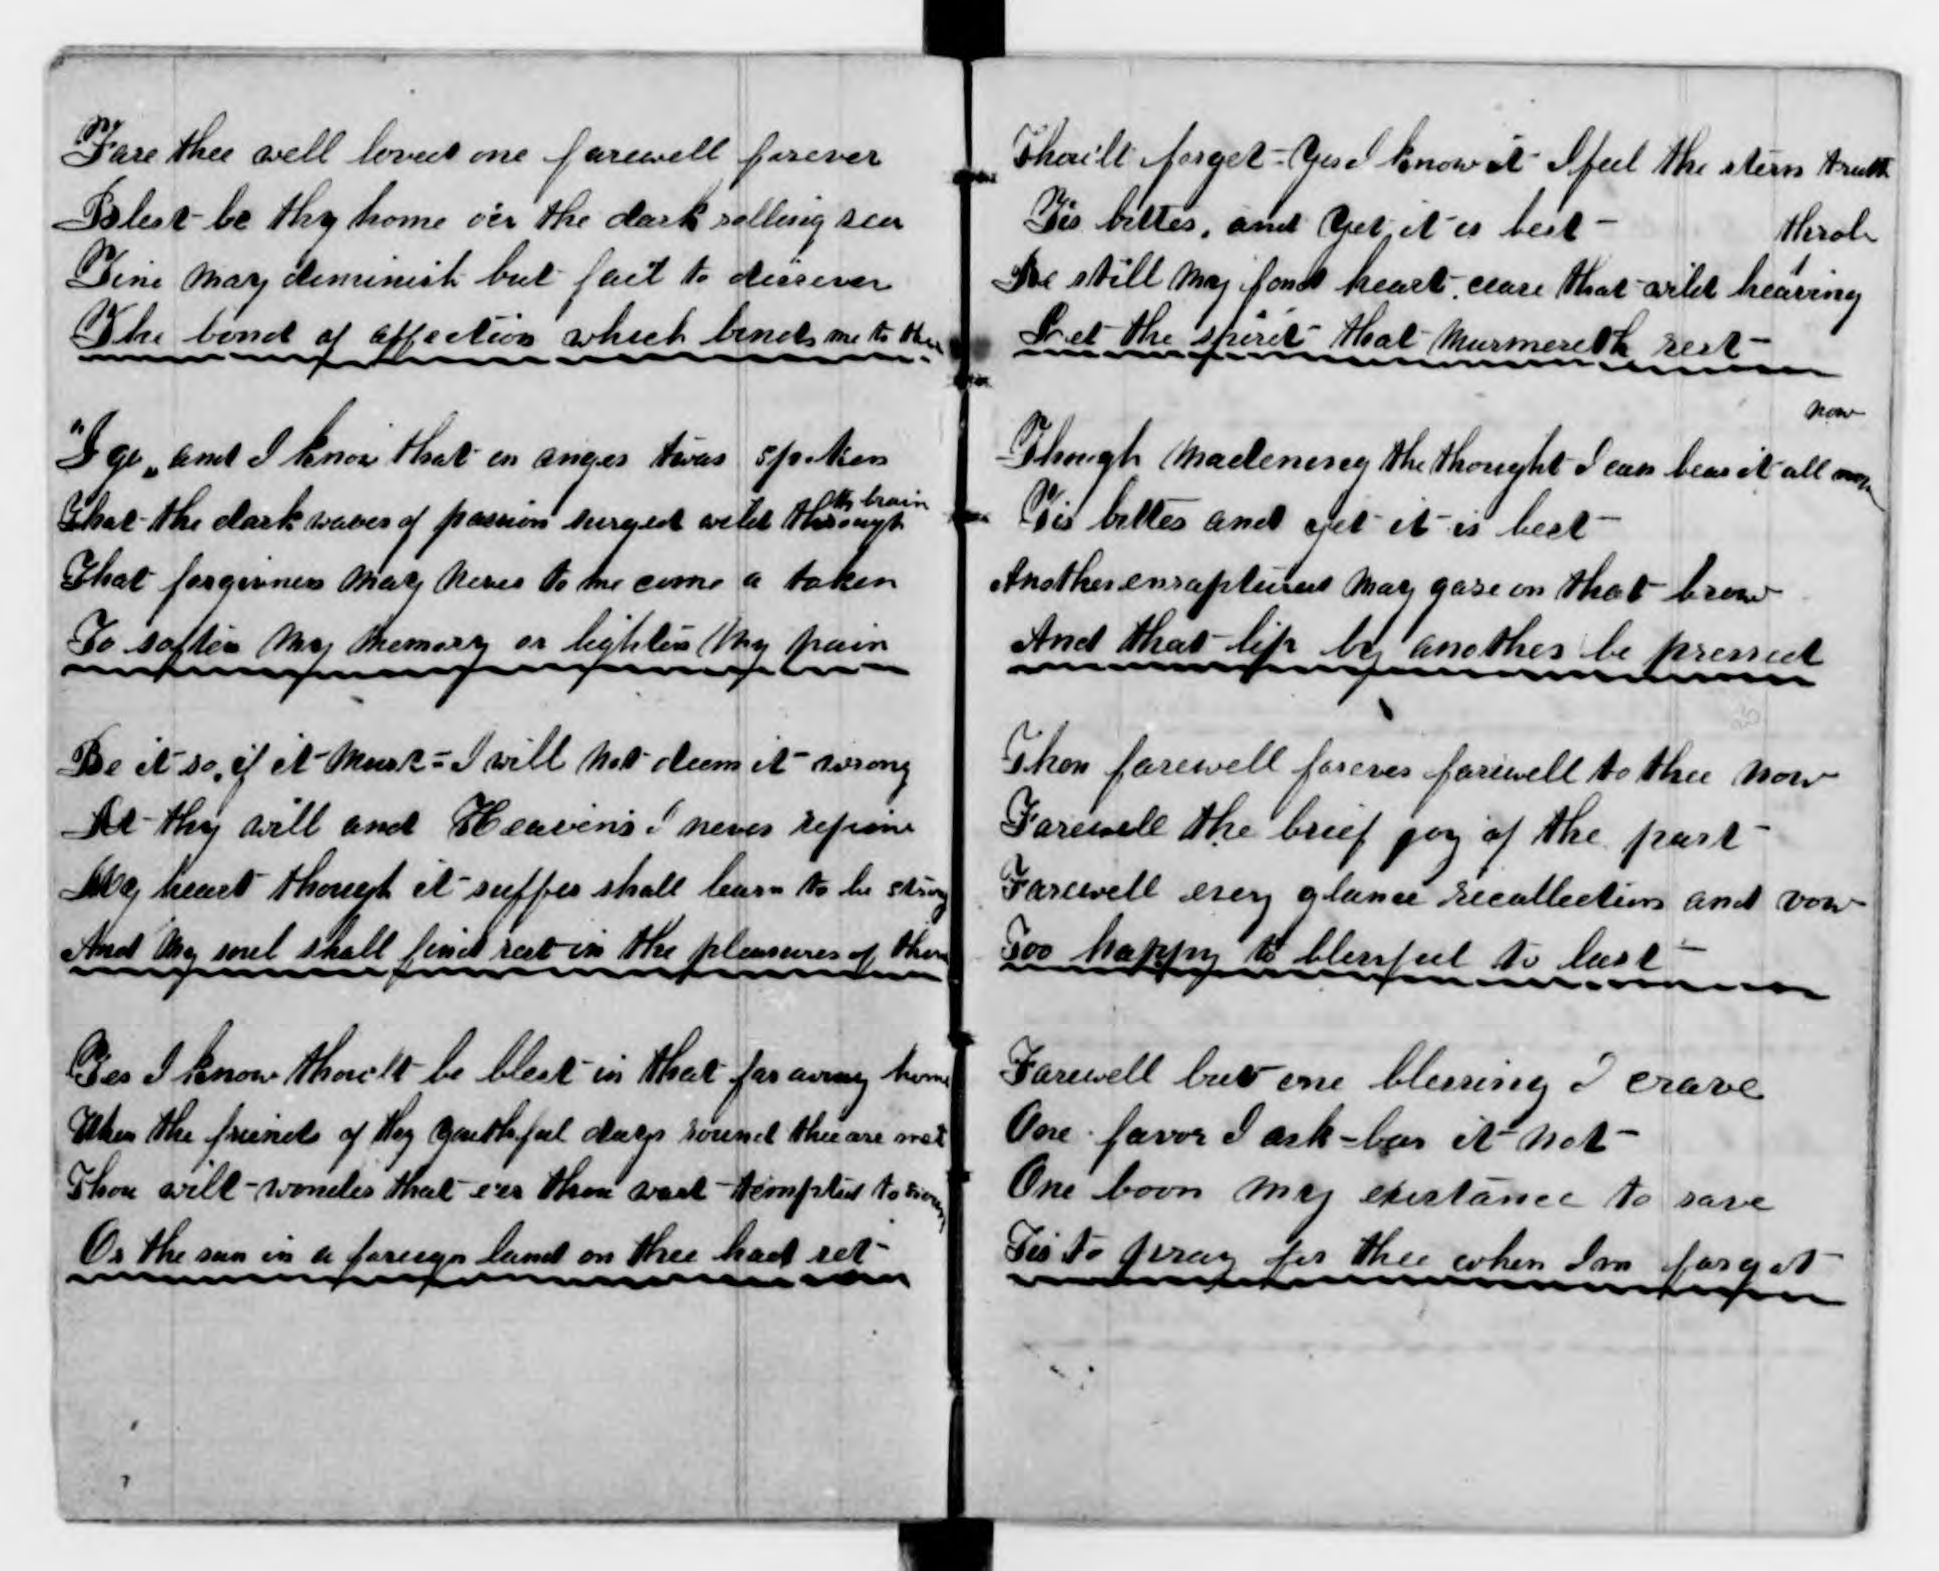 Fare thee well loved one farewell forever
Blest be thy home o'er the dark rolling sea
Time may diminish but fail to dissever
The bond of affection which binds me to thee
"I go" and I know that in anger twas spoken
That the dark waves of passion surged wild through th brain
That forgivness may never to me come a token
To soften my memory or lighten my pain
Be it so, if it must = I will not deem it wrong
At thy will and Heaven's I never repine
My heart though it suffer shall learn to be strong
And my soul shall find rest in the pleasures of thine
Yes I know thou'lt be blest in that far away home
When the friends of thy youthful days round thee are met
Thou wilt wonder that e'er thou wast tempted to roam
Or the sun in a foreign land on thee had set
Thou'lt forget = Yes I know it I feel the stern truth
Tis bitter, and Yet it is best
throb
Be still my fond heart, cease that wild heaving
Let the spirit that murmereth rest
now
Though madening the thought I can bear it all
Tis bitter and yet it is best
Another enraptured may gaze on that brow
And that lip by another be pressed
Then farewell forever farewell to thee now
Farewell the brief joy of the past
Farewell every glance recollection and vow
Too happy to blessful to last
Farewell but one blessing I crave
One favor I ask = bar it not
One boon my existance to save
Tis to pray for thee when Im forgot